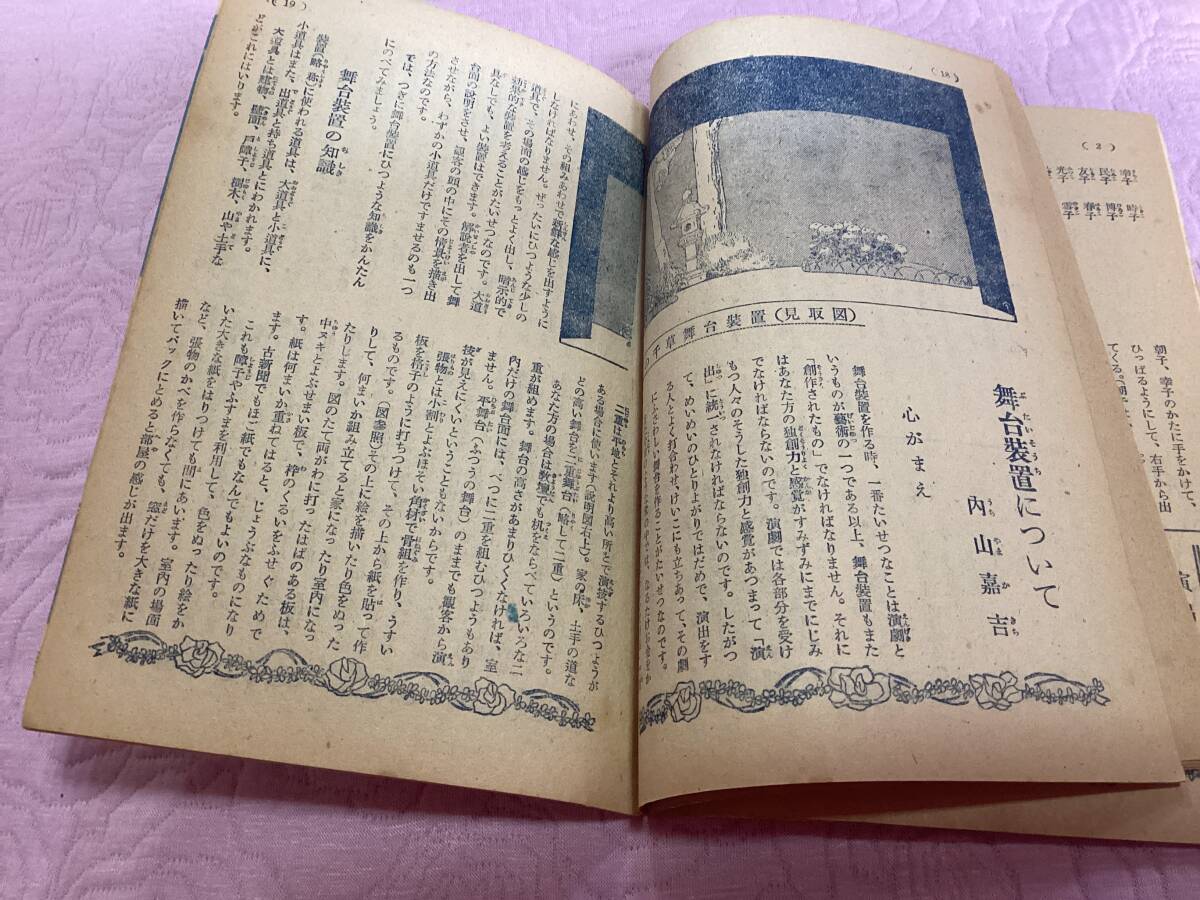 (18)
の千草舞台装置(見取図)
舞台裝置について
内山嘉吉
心がまえ
舞台裝置を作る時、一番たいせつなことは演劇と
いうものが藝術の一つである以上、舞台裝置もまた
「創作されたもの」でなければなりません。それに
はあなた方の独創力と感覚がすみずみにまでにじみ
でなければならないのです。演劇では各部分を受け
もつ人々のそうした独創力と感覚があつまって「演
出」に統一されなければならないのです。したがつ
て、めいめいのひとりよがりではだめで、演出をす
る人とよく打合わせ、けいこにも立ちあって、その劇
にふさわしい舞台を作ることがたいせつなのです。
(19)
にあわせ、その組みあわせで新鮮な感じを出すように
しなければなりません。ぜったいにひつような少しの
道具で、その場面の感じをもっとよく出し、暗示的で
効果的な裝置を考えることがたいせつなのです。大道
具なしでも、よい裝置はできます。解説者を出して舞
台面の説明をさせ、観客の頭の中にその情景を描き出
させながら、わずかの小道具だけですませるのも一つ
の方法なのです。
では、つぎに舞台裝置にひつような知識をかんたん
にのべてみましょう。
舞台裝置の知識
裝置(略称)に使われる道具は、大道具と小道具に、
小道具はまた、出道具と持ち道具とにわかれます。
大道具とは建物、壁面、戸障子、樹木、山や土手な
どがこれにはいります。
二重 平地とそれより高い所とで演技するひつようが
ある場合に使います(説明図右上)。家の床、土手の道な
どの高い舞台を二重舞台(略して二重)というのです。
あなた方の場合は教壇でも机をならべていろいろな二
重が組めます。舞台の高さがあまりひくくなければ、室
内だけの舞台面には、べつに二重を組むひつようもあり
ません。平舞台(ふつうの舞台)のままでも観客から演
技が見えにくいということもないからです。
張物とは小割とよぶほそい角材で骨組を作り、うすい
板を格子のように打ちつけて、その上から紙を貼って作
るものです。(図参照)その上に絵を描いたり色をぬった
りして、何まいか組み立てると家になったり室内になっ
たりします。図のたて両がわに打ったはばのある板は、
中ヌキとよぶせまい板で、枠のくるいをふせぐためで
す。紙は何まいか重ねてはると、じょうぶなものになり
ます。古新聞でもほご紙でもなんでもよいのです。
これも障子やふすまを利用して、色をぬったり絵をか
いた大きな紙をはりつけても間にあいます。室内の場面
など、張物のかべを作らなくても、窓だけを大きな紙に
描いてバックにとめると部屋の感じが出ます。
(2)
幸子
民子
友子
光子
時子
博子
春子
雪子
朝子、幸子のかたに手をかけて、
ひっぱるようにして、右手から出
てくる。